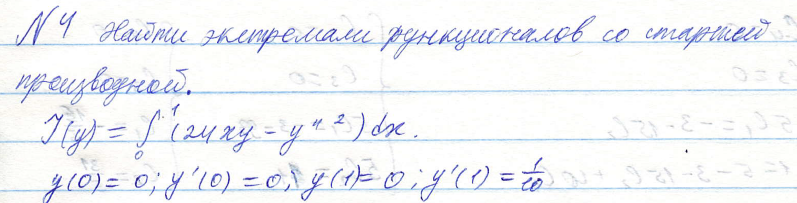 №4 Найти экстремали функционалов со старшей
производной.
J(y) = ∫₀¹ (24xy - y''²) dx.
y(0) = 0; y'(0) = 0; y(1) = 0; y'(1) = 1/10